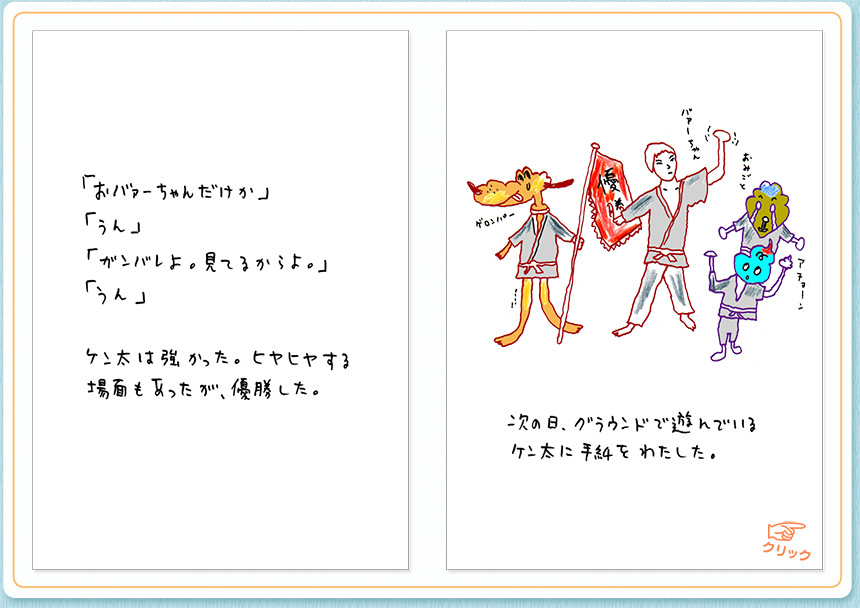 「おバァーちゃんだけか」
「うん」
「ガンバレよ。見てるからよ。」
「うん」
ケン太は強かった。ヒヤヒヤする
場面もあったが、優勝した。
バァーちゃん
おみごと
ゲロンパー
優
アチョーン
次の日、グラウンドで遊んでいる
ケン太に手紙をわたした。
クリック